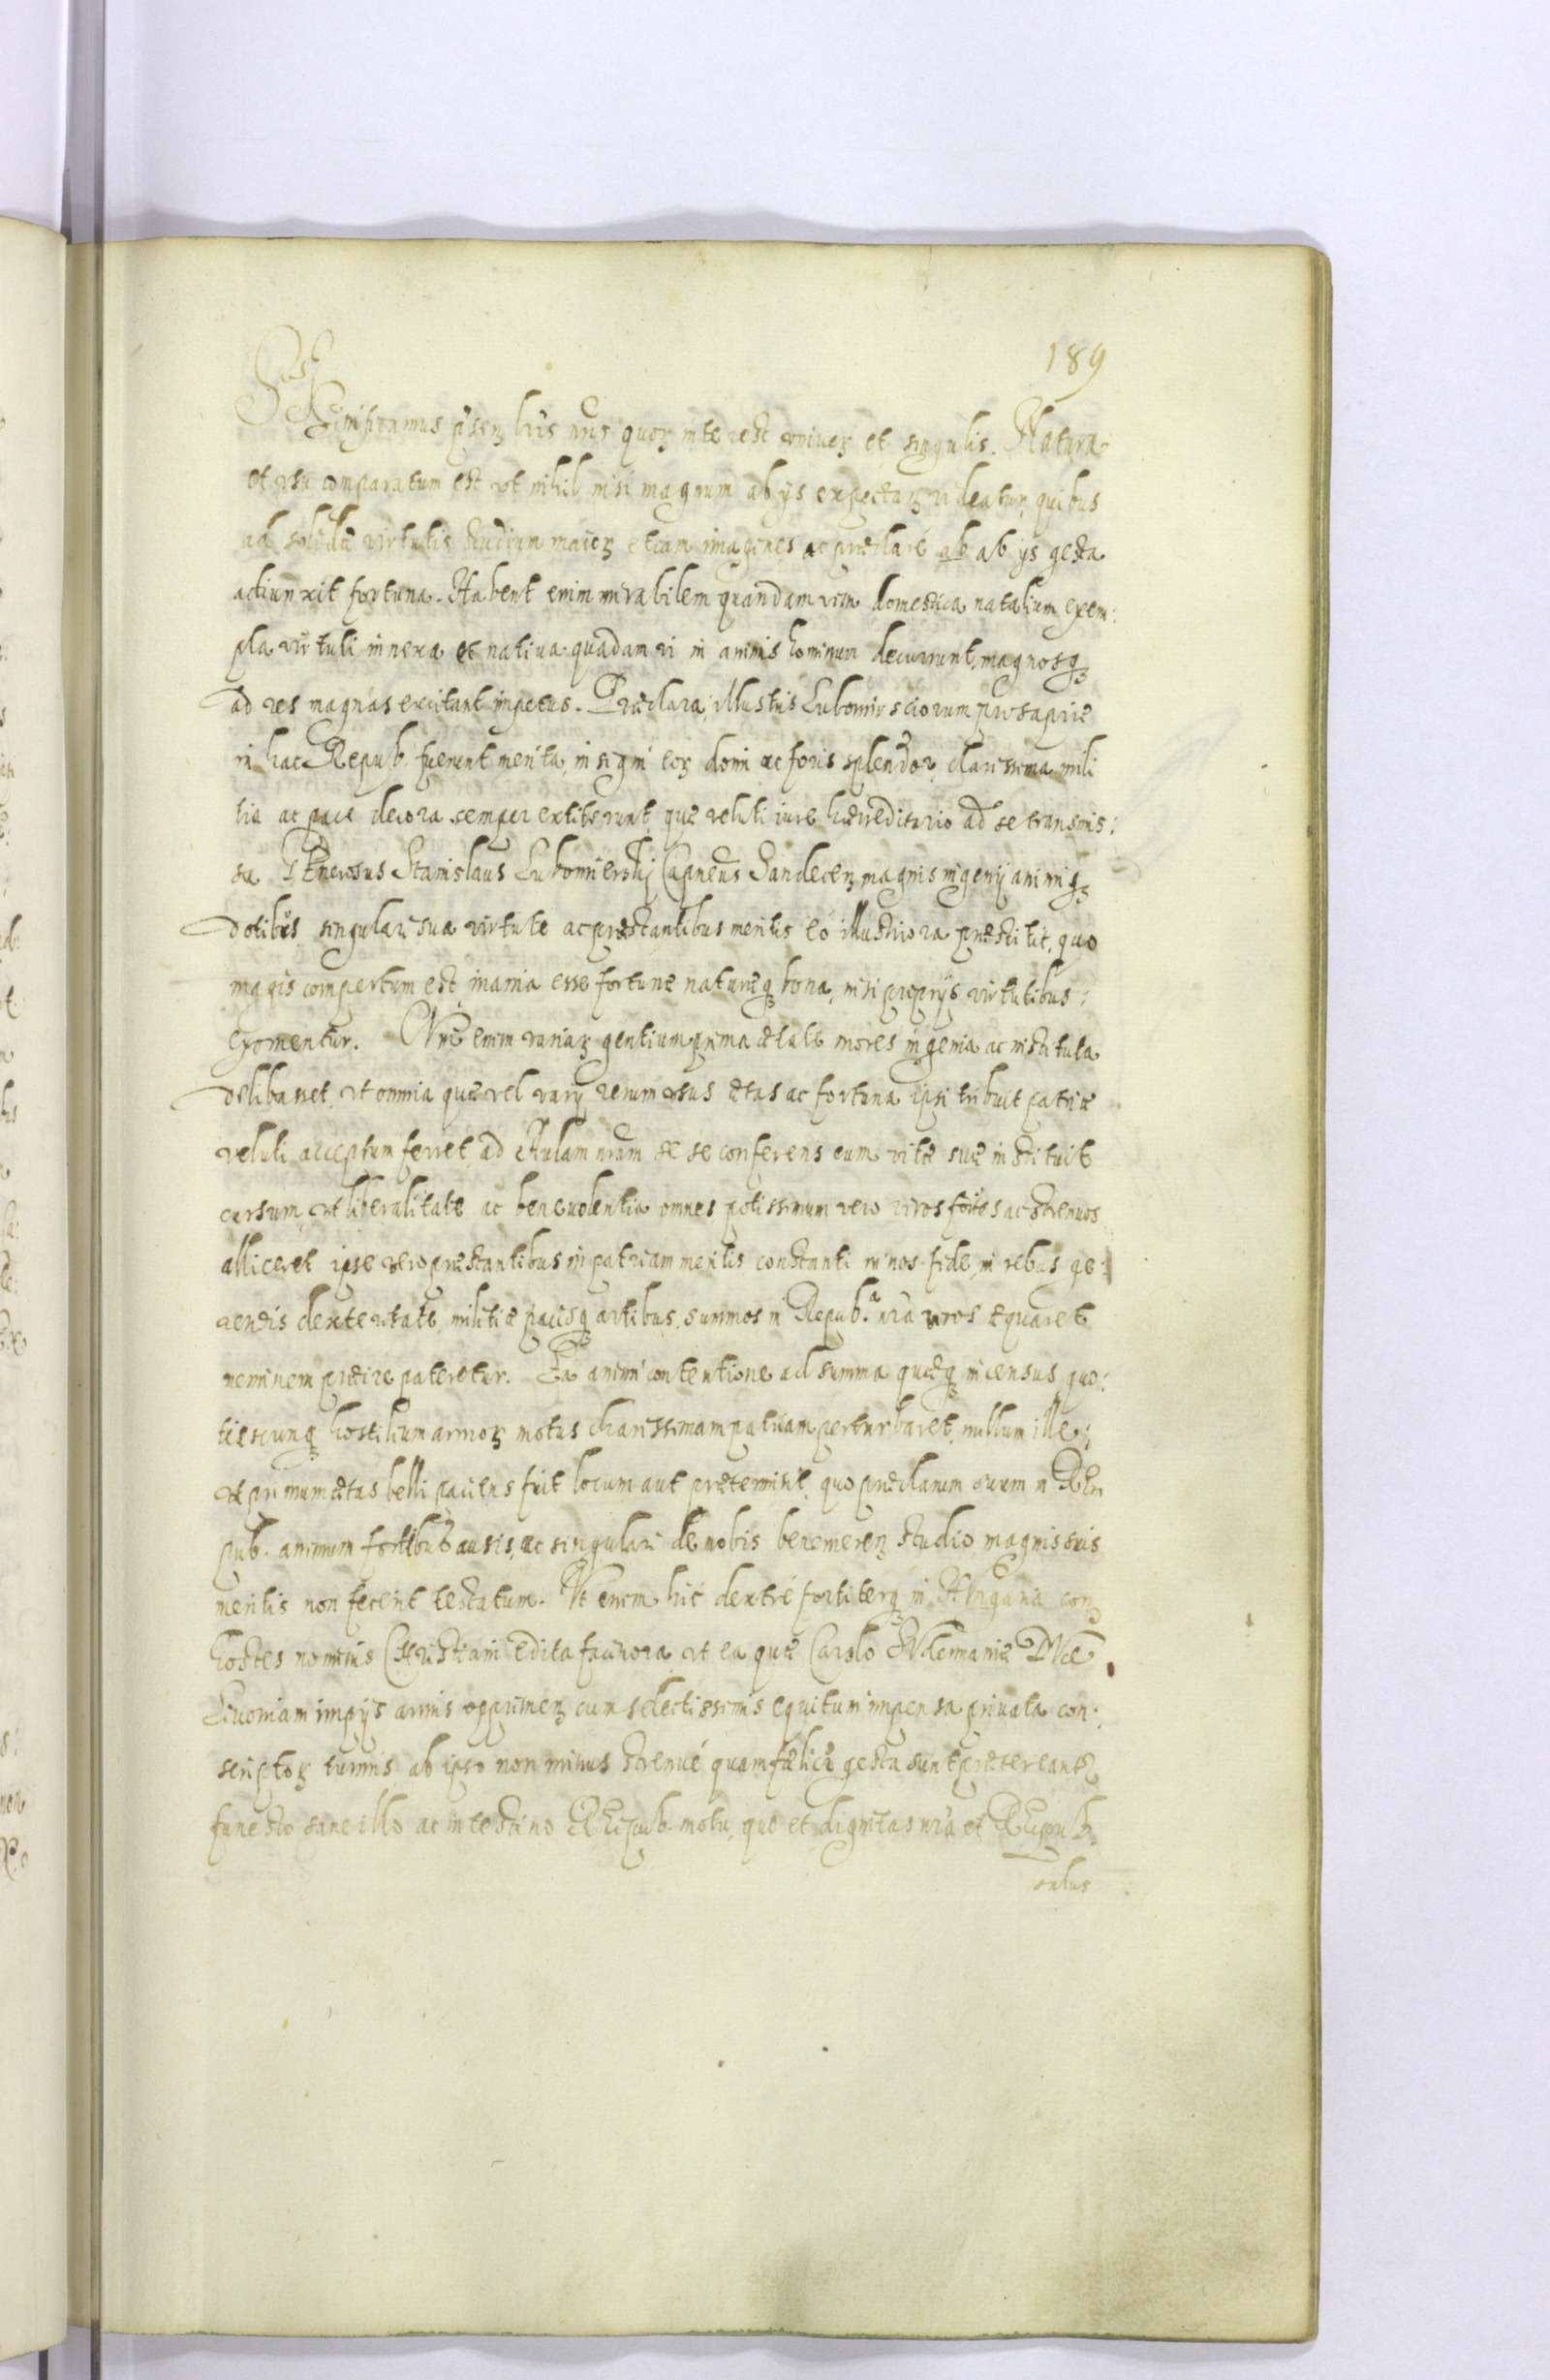 189
Significamus p̃senƺ lr̃is nr̃is quorƺ interest vniuerƺ et singulis. Natura
et vsu comparatum est vt nihil nisi magnum ab ijs expectarƺ videatur, quibus
ad solidũ virtutis studium maiorƺ etiam imagines ac præclarè ab ab ijs gesta
adiunxit fortuna. Habent enim mirabilem quandam vim domestica natalium exem:
pla virtuti innexa et natiua quadam vi in animis hominum decurrunt, magnosqƺ
ad res magnas excitant impetus. Præclara, illustris Lubomirsciorum prosapiæ
in hac Repub. fuerunt merita, insigni eorƺ domi ac foris splendor, clarissima mili
tia ac pace decora semper extiterunt, quæ veluti iure hæreditario ad se transmis:
sa GEnerosus Stanislaus Lubomierskj Capneus Sandecenƺ magnis ingenij animiqƺ
dotibus singulari sua virtute ac præstantibus meritis eò illustriora præstitit, quo
magis compertum est, inania esse fortunæ naturæqƺ bona, nisi proprijs virtutibus
exornentur. Cum enim variarƺ gentium prima ætate mores ingenia ac instituta
delibasset, vt omnia quæ vel varij rerum vsus ætas ac fortuna ipsi tribuit patriæ
veluti acceptum ferret, ad Aulam nr̃am se se conferens eum vitæ suæ instituit
cursum, vt liberalitate ac beneuolentia omnes potissimum vero viros fortes ac strenuos
alliceret ipse vero præstantibus in patriam meritis constanti in nos fide, in rebus ge:
rendis dexteritate, militiæ pacisqƺ artibus, summos in Repub.ª nr̃a viros æquaret
neminem præire pateretur. Ea animi contentione ad summa quæqƺ incensus quo:
tiescunqƺ hostilium armorƺ motus charissimam patriam perturbaret, nullum ille,
vt primum ætas belli paciens fuit locum aut prætermisit, quo præclarum suum in REm
pub. animum fortibus ausis, ac singulari de nobis beneméren̄ studio magnis suis
meritis non fecerit testatum. Vt enim hic dextrè fortiterqƺ in Hungaria conƺ
hostes nominis CHristiani edita facinora, vt ea quæ Carolo SVdermaniæ DVce
Liuoniam impijs armis opprimenƺ cum selectissimis equitum impensa priuata con:
scriptorƺ turmis, ab ipso non minus strenuè quam fælicè gesta sunt prætereantr̃
funesto sane illo ac intestino REipub. motu, quo et dignitas nr̃a et REipub.
salus